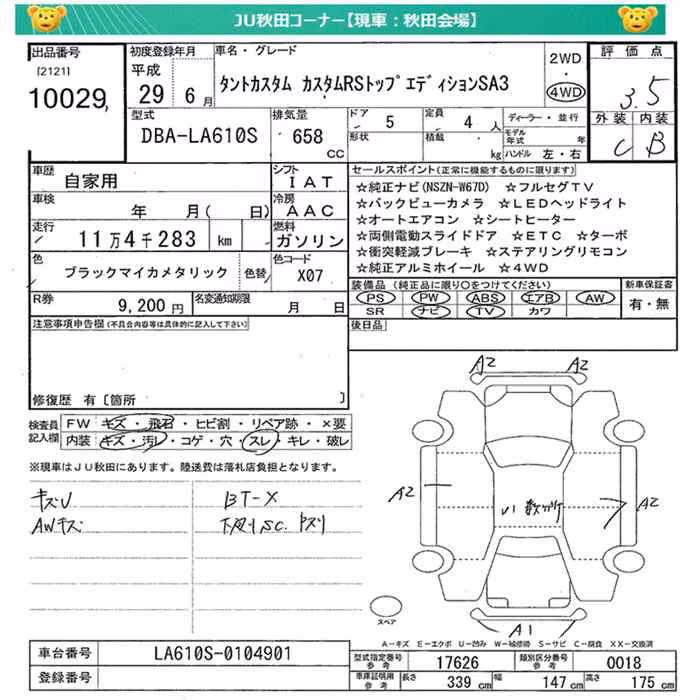 JU秋田コーナー【現車：秋田会場】
出品番号
[2121]
10029
初度登録年月
平成
29 6月
車名・グレード
タントカスタム カスタムRSトップエディションSA3
2WD
・
4WD
評価点
3.5
外装 内装
C B
型式
DBA-LA610S
排気量
658
CC
ドア 5
形状
定員 4 人
積載 kg
ディーラー・並行
モデル年式 年
ハンドル 左・右
車歴
自家用
シフト
IAT
車検
年 月( 日)
冷房
AAC
走行
11万4千283 km
燃料
ガソリン
色
ブラックマイカメタリック
色替
色コード
X07
R券
9,200円
名変通知期限
月 日
セールスポイント(正常に機能するものに限ります)
☆純正ナビ(NSZN-W67D) ☆フルセグTV
☆バックビューカメラ ☆LEDヘッドライト
☆オートエアコン ☆シートヒーター
☆両側電動スライドドア ☆ETC ☆ターボ
☆衝突軽減ブレーキ ☆ステアリングリモコン
☆純正アルミホイール ☆4WD
装備品 (純正品に限り○をつけてください)
PS PW ABS エアB AW
SR ナビ TV カワ
新車保証書
有・無
後日品
注意事項申告欄(不具合内容等は具体的に記入して下さい)
修復歴 有〔箇所 〕
検査員記入欄
FW キズ・飛石・ヒビ割・リペア跡・×要
内装 キズ・汚レ・コゲ・穴・スレ・キレ・破レ
※現車はJU秋田にあります。陸送費は落札店負担となります。
キズU
AWキズ
BT-X
A2 A2
A2
A2
A1
スペア
A-キズ E-エクボ U-凹み W-補修跡 S-サビ C-腐食 XX-交換済
車台番号
LA610S-0104901
登録番号
型式指定番号 参考
17626
類別区分番号 参考
0018
車庫証明用 参考
長さ 339 cm
幅 147 cm
高さ 175 cm